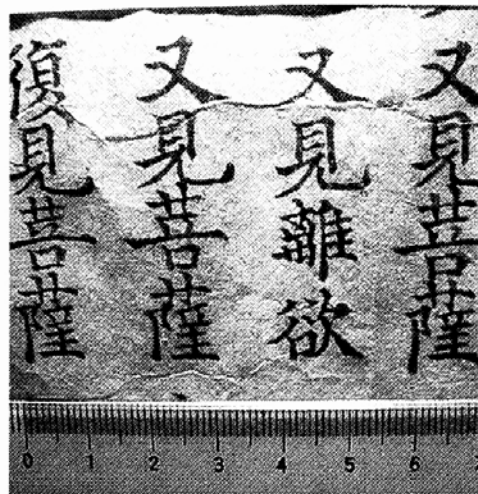 又見菩薩
又見離欲
又見菩薩
復見菩薩
0 1 2 3 4 5 6 7